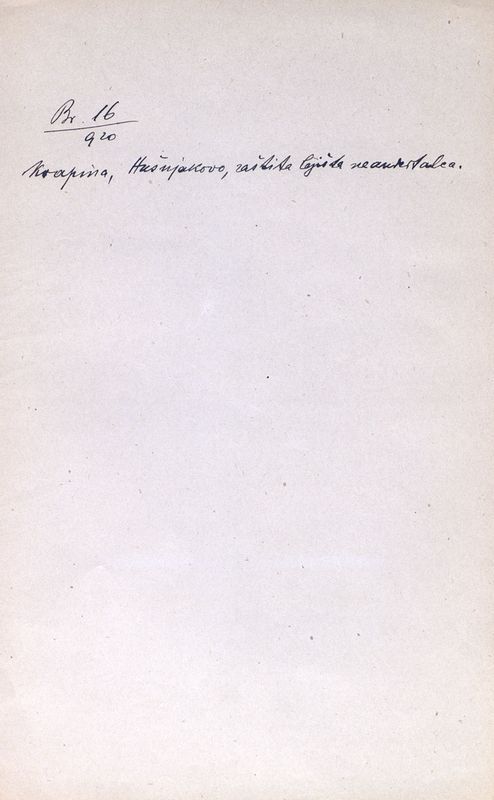 Br. 16
920
Krapina, Hušnjakovo, zaštita ležišta neandertalca.